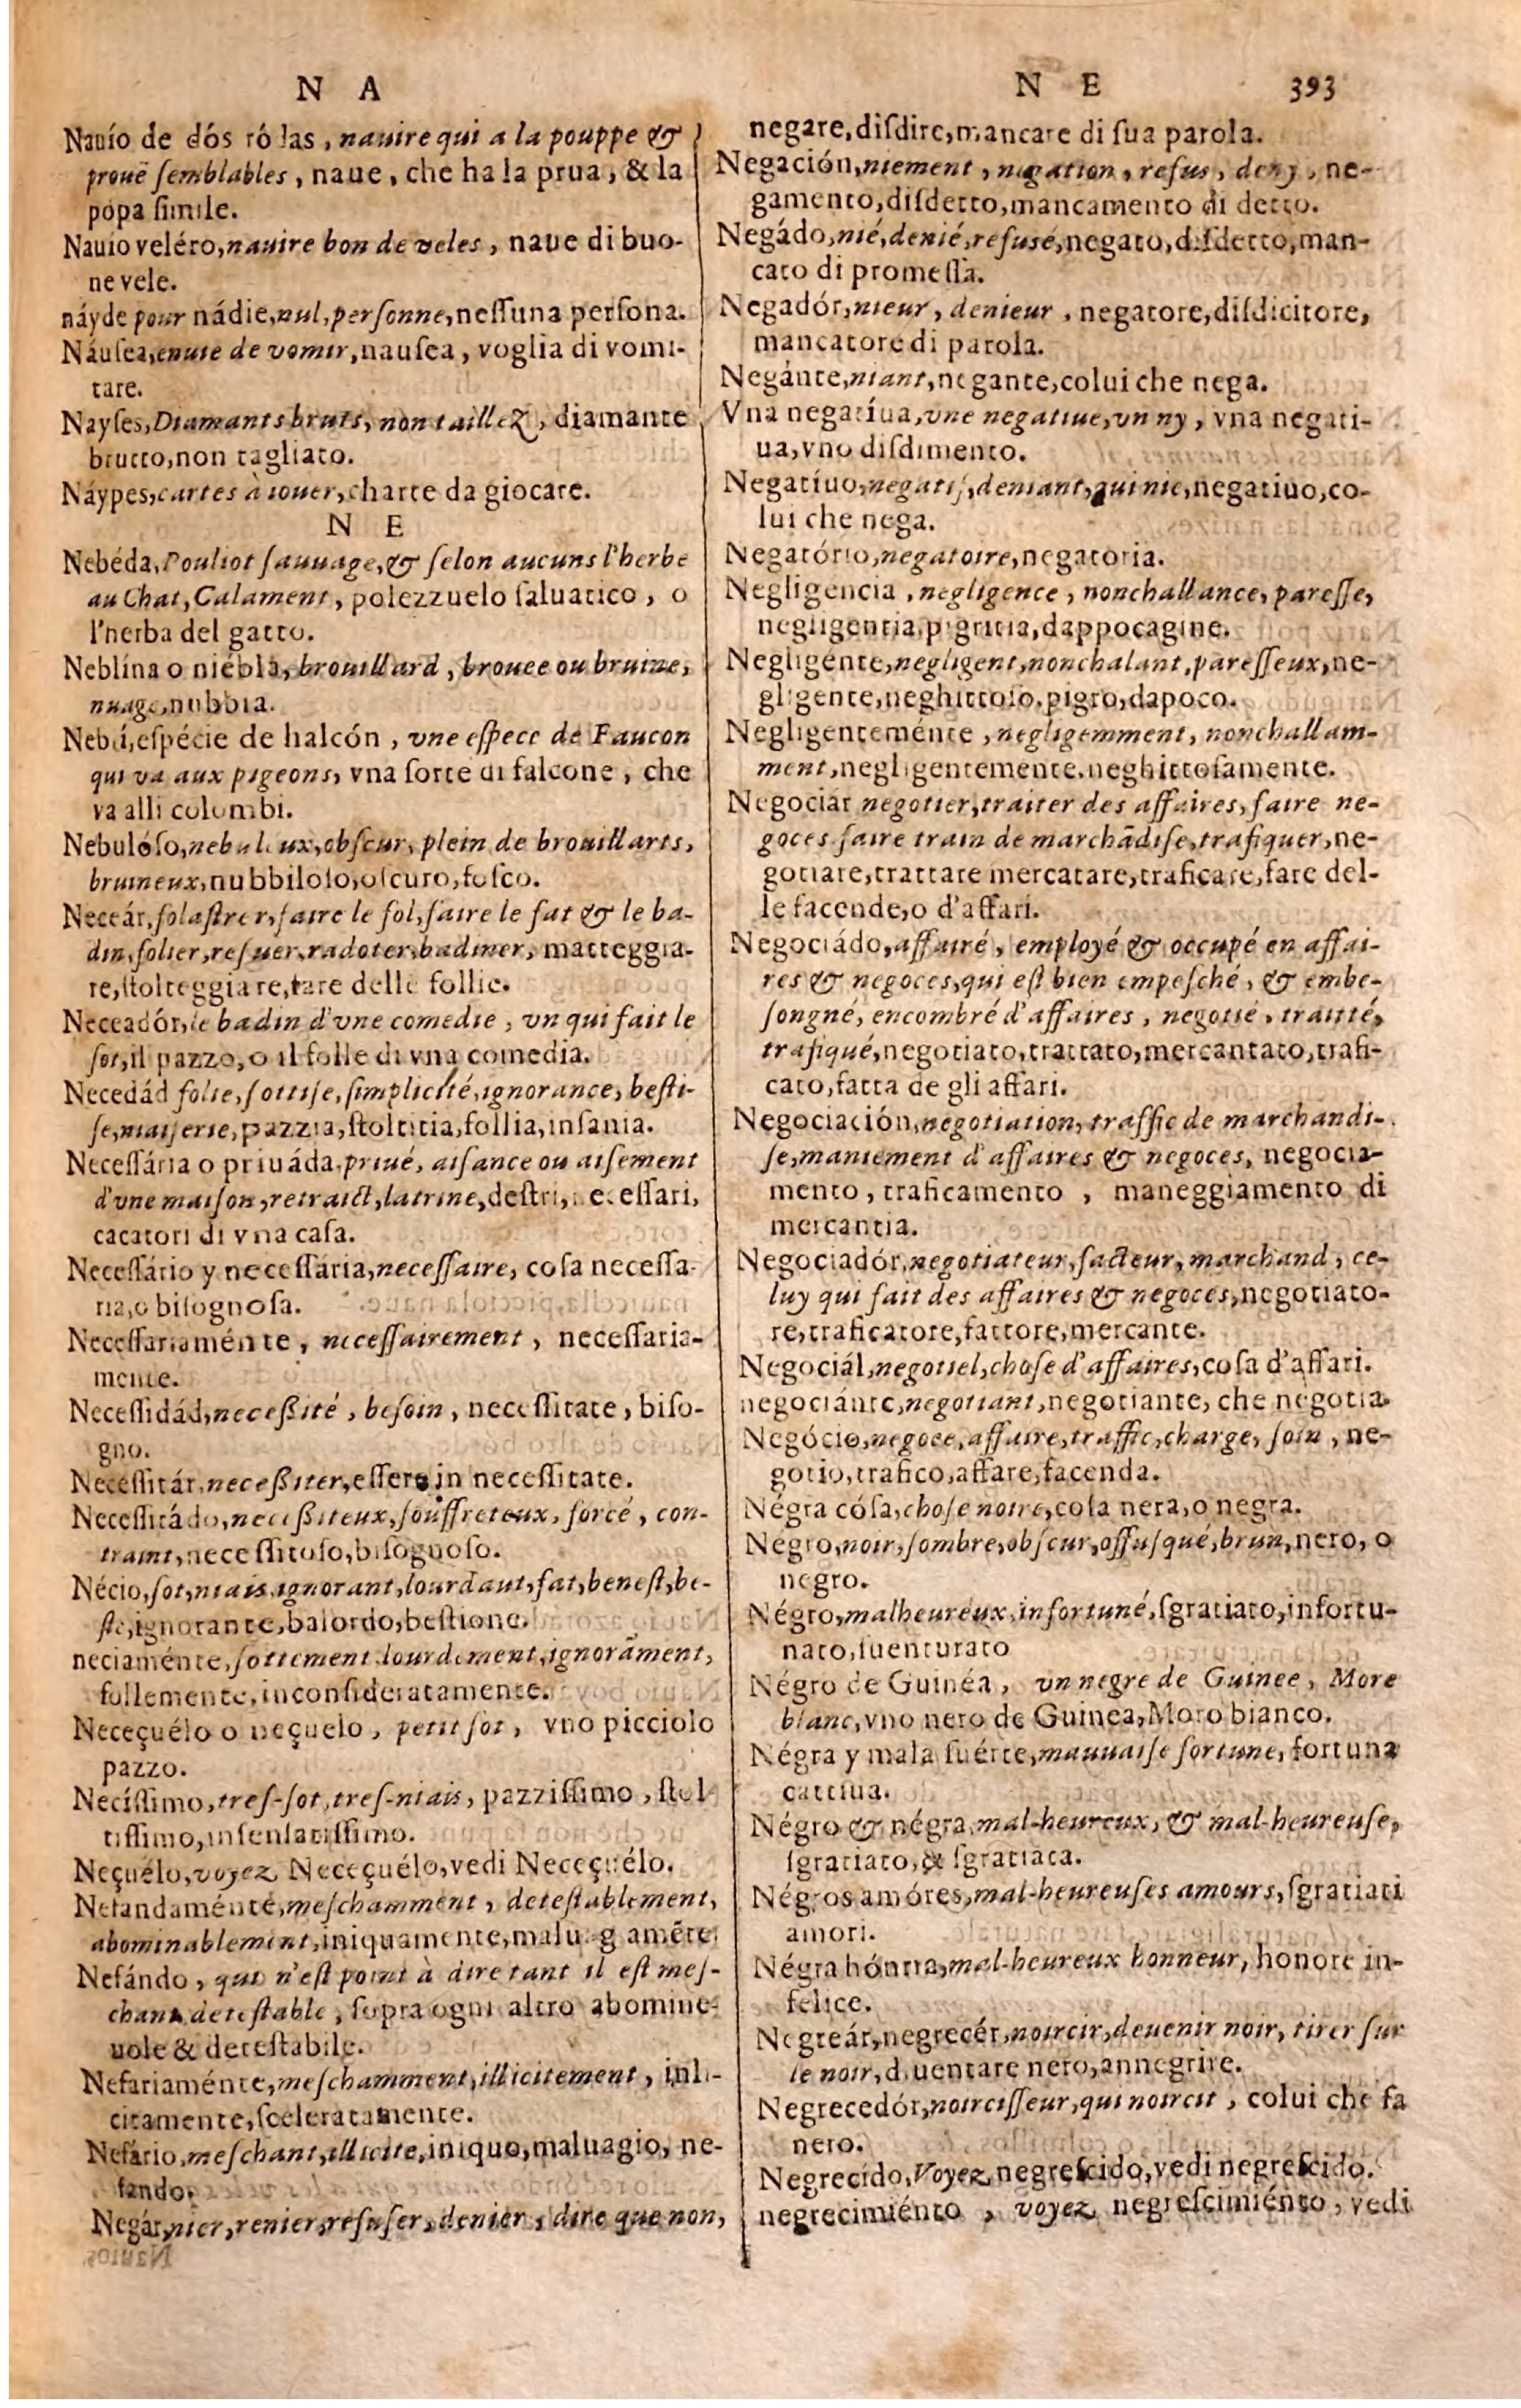 N A
Nauío de dós ró las, nauire qui a la pouppe &
prouë ſemblables, naue, che ha la prua, & la
popa ſimile.
Nauio veléro, nauire bon de veles, naue di buo-
ne vele.
náyde pour nádie, nul, perſonne, neſſuna perſona.
Náuſea, enuie de vomir, nauſea, voglia di vomi-
tare.
Nayſes, Diamants bruts, non taillez, diamante
brutto, non tagliato.
Náypes, cartes à iouer, charte da giocare.
N E
Nebéda, Pouliot ſauuage, & ſelon aucuns l'herbe
au Chat, Calament, polezzuelo ſaluatico, o
l'herba del gatto.
Neblína o niébla, brouillard, brouee ou bruine,
nuage, nubbia.
Neblí, eſpécie de halcón, vne eſpece de Faucon
qui va aux pigeons, vna ſorte di falcone, che
va alli colombi.
Nebulóſo, nebuleux, obſcur, plein de brouillarts,
bruineux, nubbiloſo, oſcuro, foſco.
Neceár, folaſtrer, faire le fol, faire le fat & le ba-
din, folier, reſuer, radoter, badiner, matteggia-
re, ſtolteggiare, fare delle follie.
Neceadór, le badin d'vne comedie, vn qui fait le
ſot, il pazzo, o il folle di vna comedia.
Necedád folie, ſottiſe, ſimplicité, ignorance, beſti-
ſe, niaiſerie, pazzia, ſtoltitia, follia, inſania.
Neceſſária o priuáda, priué, aiſance ou aiſement
d'vne maiſon, retraict, latrine, deſtri, neceſſari,
cacatori di vna caſa.
Neceſſário y neceſſária, neceſſaire, coſa neceſſa-
ria, o biſognoſa.
Neceſſariaménte, neceſſairement, neceſſaria-
mente.
Neceſſidád, neceßité, beſoin, neceſſitate, biſo-
gno.
Neceſſitár, neceßiter, eſſere in neceſſitate.
Neceſſitádo, neceßiteux, ſouffreteux, forcé, con-
traint, neceſſitoſo, biſognoſo.
Nécio, ſot, niais, ignorant, lourdaut, fat, beneſt, be-
ſte, ignorante, balordo, beſtione.
neciaménte, ſottement, lourdement, ignorãment,
follemente, inconſideratamente.
Neceçuélo o neçuelo, petit ſot, vno picciolo
pazzo.
Necíſſimo, treſ-ſot, treſ-niais, pazziſſimo, ſtol
tiſſimo, inſenſatiſſimo.
Neçuélo, voyez Neceçuélo, vedi Neceçuélo.
Nefandaménte, meſchamment, deteſtablement,
abominablement, iniquamente, maluag amẽte
Nefándo, qui n'eſt point à dire tant il eſt meſ-
chant, deteſtable, ſopra ogni altro abomine-
uole & deteſtabile.
Nefariaménte, meſchamment, illicitement, inli-
citamente, ſceleratamente.
Nefário, meſchant, illicite, iniquo, maluagio, ne-
fando.
Negár, nier, renier, refuſer, denier, dire que non,
N E 393
negare, diſdire, mancare di ſua parola.
Negación, niement, negation, refus, deny, ne-
gamento, diſdetto, mancamento di detto.
Negádo, nié, denié, refusé, negato, diſdetto, man-
cato di promeſſa.
Negadór, nieur, denieur, negatore, diſdicitore,
mancatore di parola.
Negánte, niant, negante, colui che nega.
Vna negatíua, vne negatiue, vn ny, vna negati-
ua, vno diſdimento.
Negatíuo, negatif, deniant, qui nie, negatiuo, co-
lui che nega.
Negatório, negatoire, negatoria.
Negligencia, negligence, nonchallance, pareſſe,
negligentia, pigritia, dappocagine.
Negligénte, negligent, nonchalant, pareſſeux, ne-
gligente, neghittoſo, pigro, dapoco.
Negligenteménte, negligemment, nonchallam-
ment, negligentemente, neghittoſamente.
Negociár negotier, traiter des affaires, faire ne-
goces, faire train de marchãdiſe, trafiquer, ne-
gotiare, trattare mercatare, traficare, fare del-
le facende, o d'affari.
Negociádo, affairé, employé & occupé en affai-
res & negoces, qui eſt bien empeſché, & embe-
ſongné, encombré d'affaires, negotié, traitté,
trafiqué, negotiato, trattato, mercantato, trafi-
cato, fatta de gli affari.
Negociación, negotiation, traffic de marchandi-
ſe, maniement d'affaires & negoces, negocia-
mento, traficamento, maneggiamento di
mercantia.
Negociadór, negotiateur, facteur, marchand, ce-
luy qui fait des affaires & negoces, negotiato-
re, traficatore, fattore, mercante.
Negociál, negotiel, choſe d'affaires, coſa d'affari.
negociánte, negotiant, negotiante, che negotia.
Negócio, negoce, affaire, traffic, charge, ſoin, ne-
gotio, trafico, affare, facenda.
Négra cóſa, choſe noire, coſa nera, o negra.
Négro, noir, ſombre, obſcur, offuſqué, brun, nero, o
negro.
Négro, malheureux, infortuné, ſgratiato, infortu-
nato, ſuenturato
Négro de Guinéa, vn negre de Guinee, More
blanc, vno nero de Guinea, Moro bianco.
Négra y mala ſuérte, mauuaiſe fortune, fortuna
cattiua.
Négro & négra, mal-heureux, & mal-heureuſe,
ſgratiato, & ſgratiata.
Négros amóres, mal-heureuſes amours, ſgratiati
amori.
Négra hónrra, mal-heureux honneur, honore in-
felice.
Negreár, negrecér, noircir, deuenir noir, tirer ſur
le noir, diuentare nero, annegrire.
Negrecedór, noirciſſeur, qui noircit, colui che fa
nero.
Negrecído, Voyez negreſcido, vedi negreſcido.
negrecimiénto, voyez negreſcimiénto, vedi